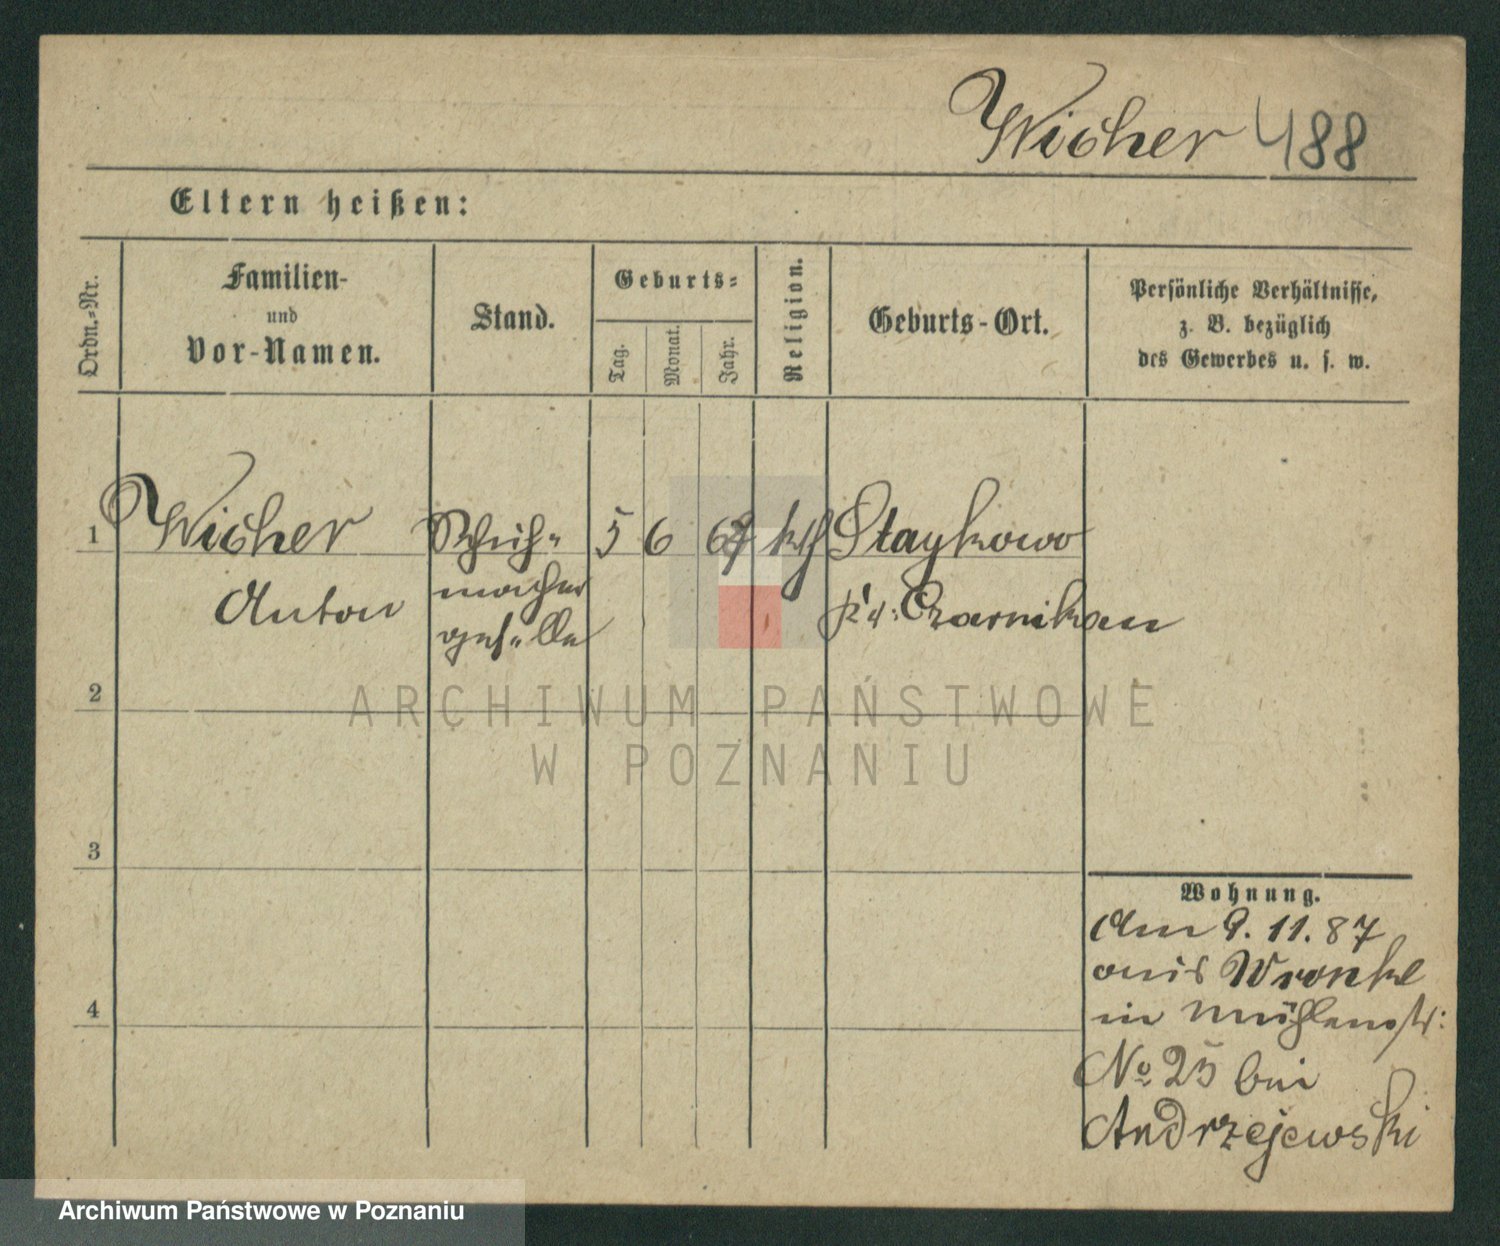 Wicher 488
Eltern heißen:
Ordn.-Nr.
Familien-
und
Vor-Namen.
Stand.
Geburts-
Tag.
Monat.
Jahr.
Religion.
Geburts-Ort.
Persönliche Verhältnisse,
z. B. bezüglich
des Gewerbes u. s. w.
1 Wicher Schuh- 5 6 kth Staykowo
Anton macher Kr: Czarnikau
geselle
2
3
4
Wohnung.
Am 9. 11. 87
aus Wronke
in Mühlenstr:
No 25 bei
Andrzejewski
ARCHIWUM PAŃSTWOWE
W POZNANIU
Archiwum Państwowe w Poznaniu